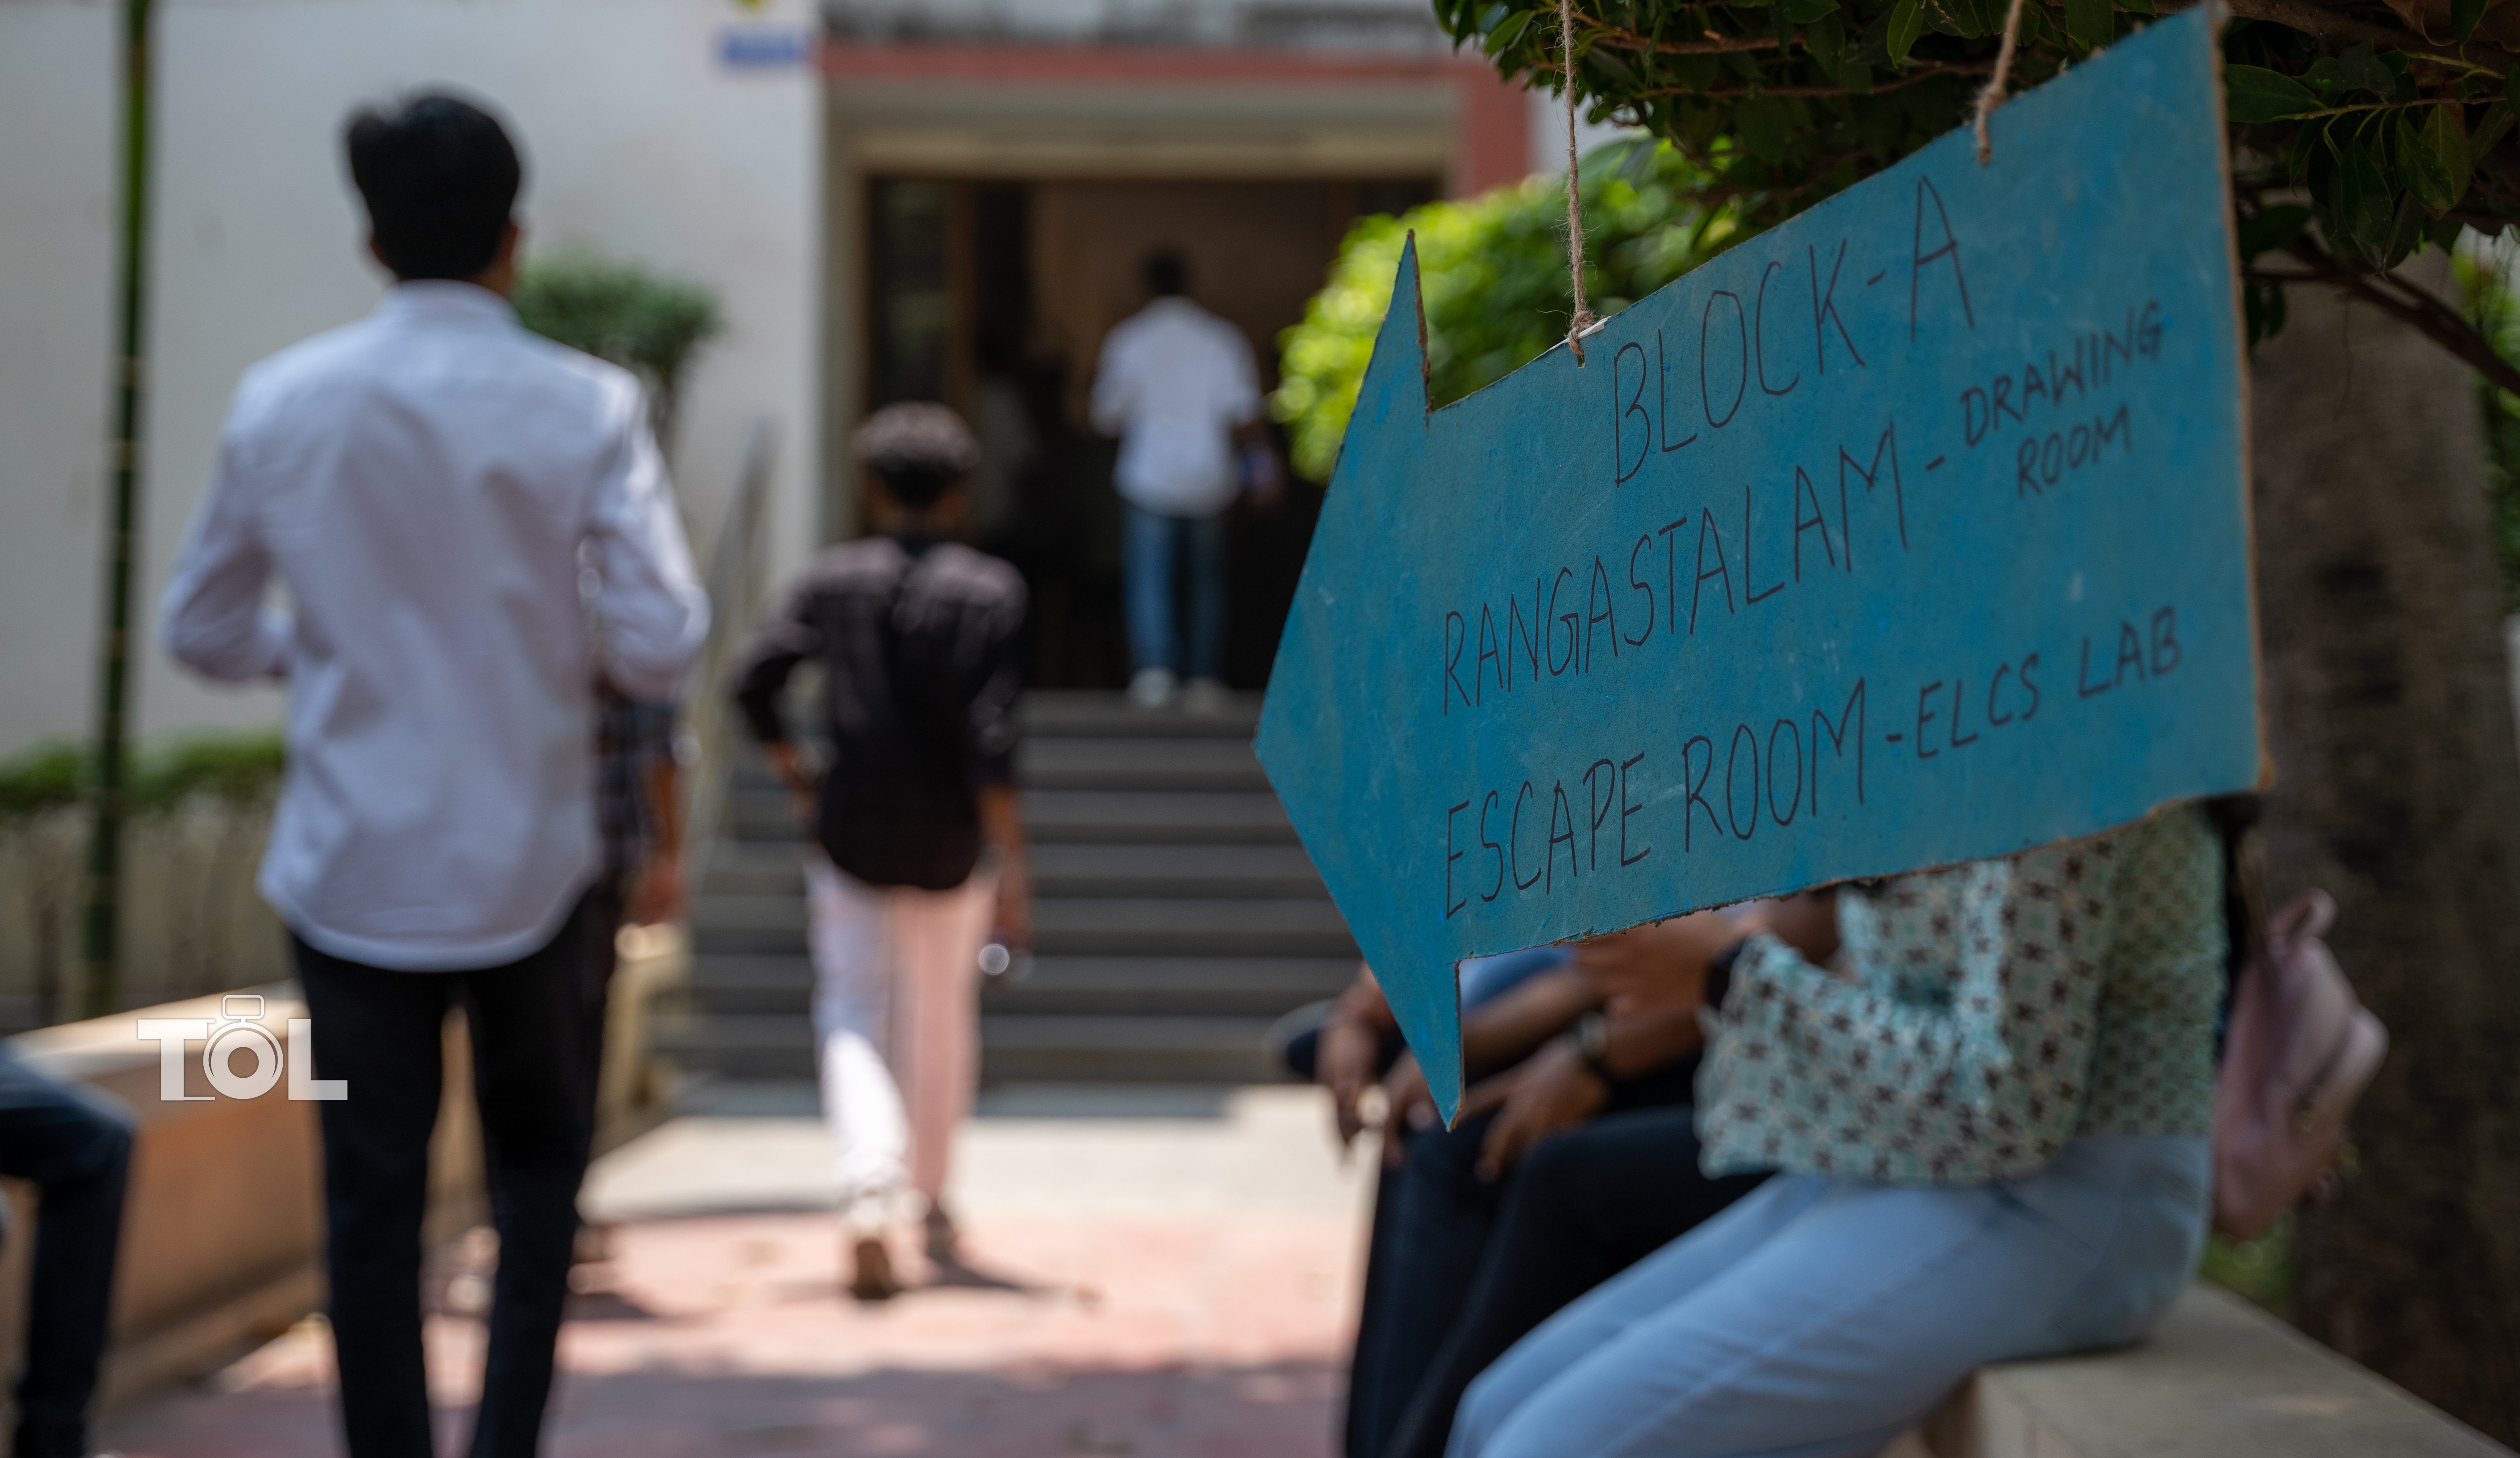 BLOCK-A
RANGASTALAM - DRAWING
ROOM
ESCAPE ROOM - ELCS LAB
TOL